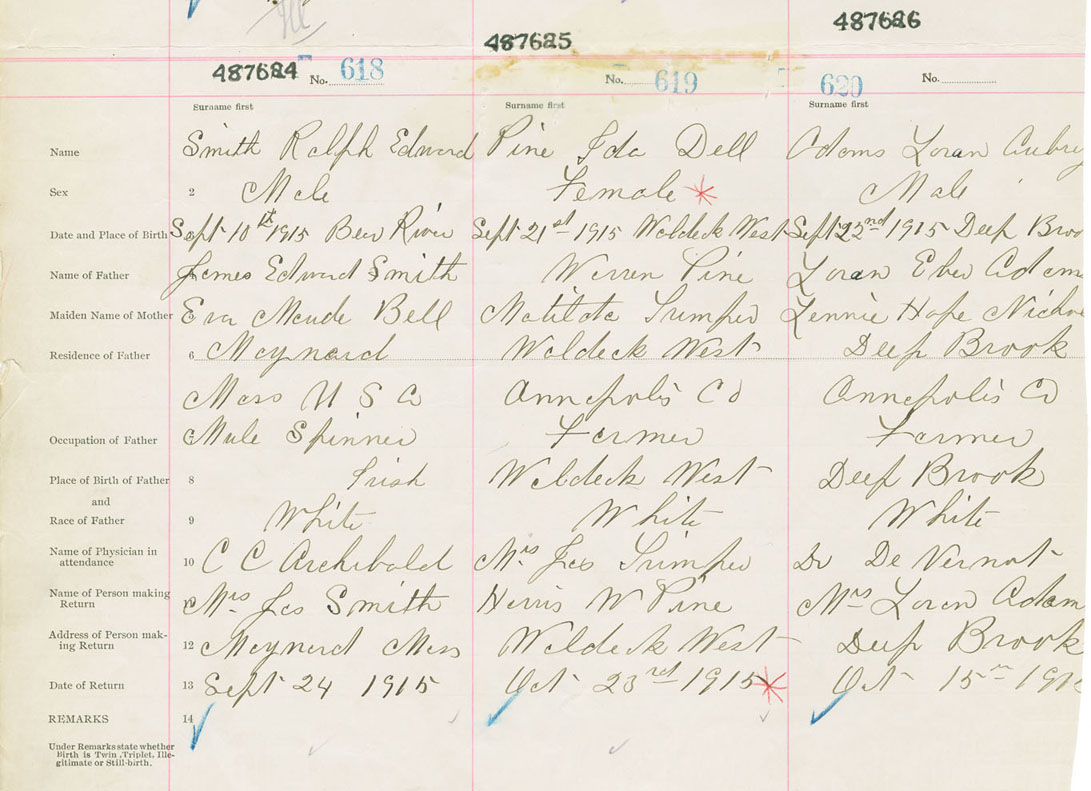 487626
487625
487624 No. 618 No. 619 620 No.
Surname first Surname first Surname first
Name Smith Ralph Edward Pine Ida Dell Adams Loran Aubrey
Sex 2 Male Female * Male
Date and Place of Birth Sept 10th 1915 Bear River Sept 21st 1915 Waldeck West Sept 22nd 1915 Deep Broo
Name of Father James Edward Smith Warren Pine Loran Eber Adams
Maiden Name of Mother Eva Maude Bell Matilda Trimper Hope
Residence of Father 6 Maynard Waldeck West Deep Brook
Mass U S A Annapolis Co Annapolis Co
Occupation of Father Mule Spinner Farmer Farmer
Place of Birth of Father 8 Irish Waldeck West Deep Brook
and
Race of Father 9 White White White
Name of Physician in
attendance 10 C C Archibald Mrs Jas Trimper Dr De Vernat
Name of Person making
Return Mrs Jas Smith Harris W Pine Mrs Loran Adam
Address of Person mak-
ing Return 12 Maynard Mass Waldeck West Deep Brook
Date of Return 13 Sept 24 1915 Oct 23rd 1915 * Oct 15th 191
REMARKS 14
Under Remarks state whether
Birth is Twin, Triplet, Ille-
gitimate or Still-birth.